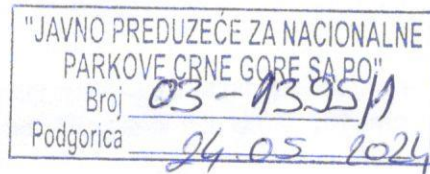 "JAVNO PREDUZEĆE ZA NACIONALNE
PARKOVE CRNE GORE SA PO"
Broj 03-1395/1
Podgorica 24.05 2024